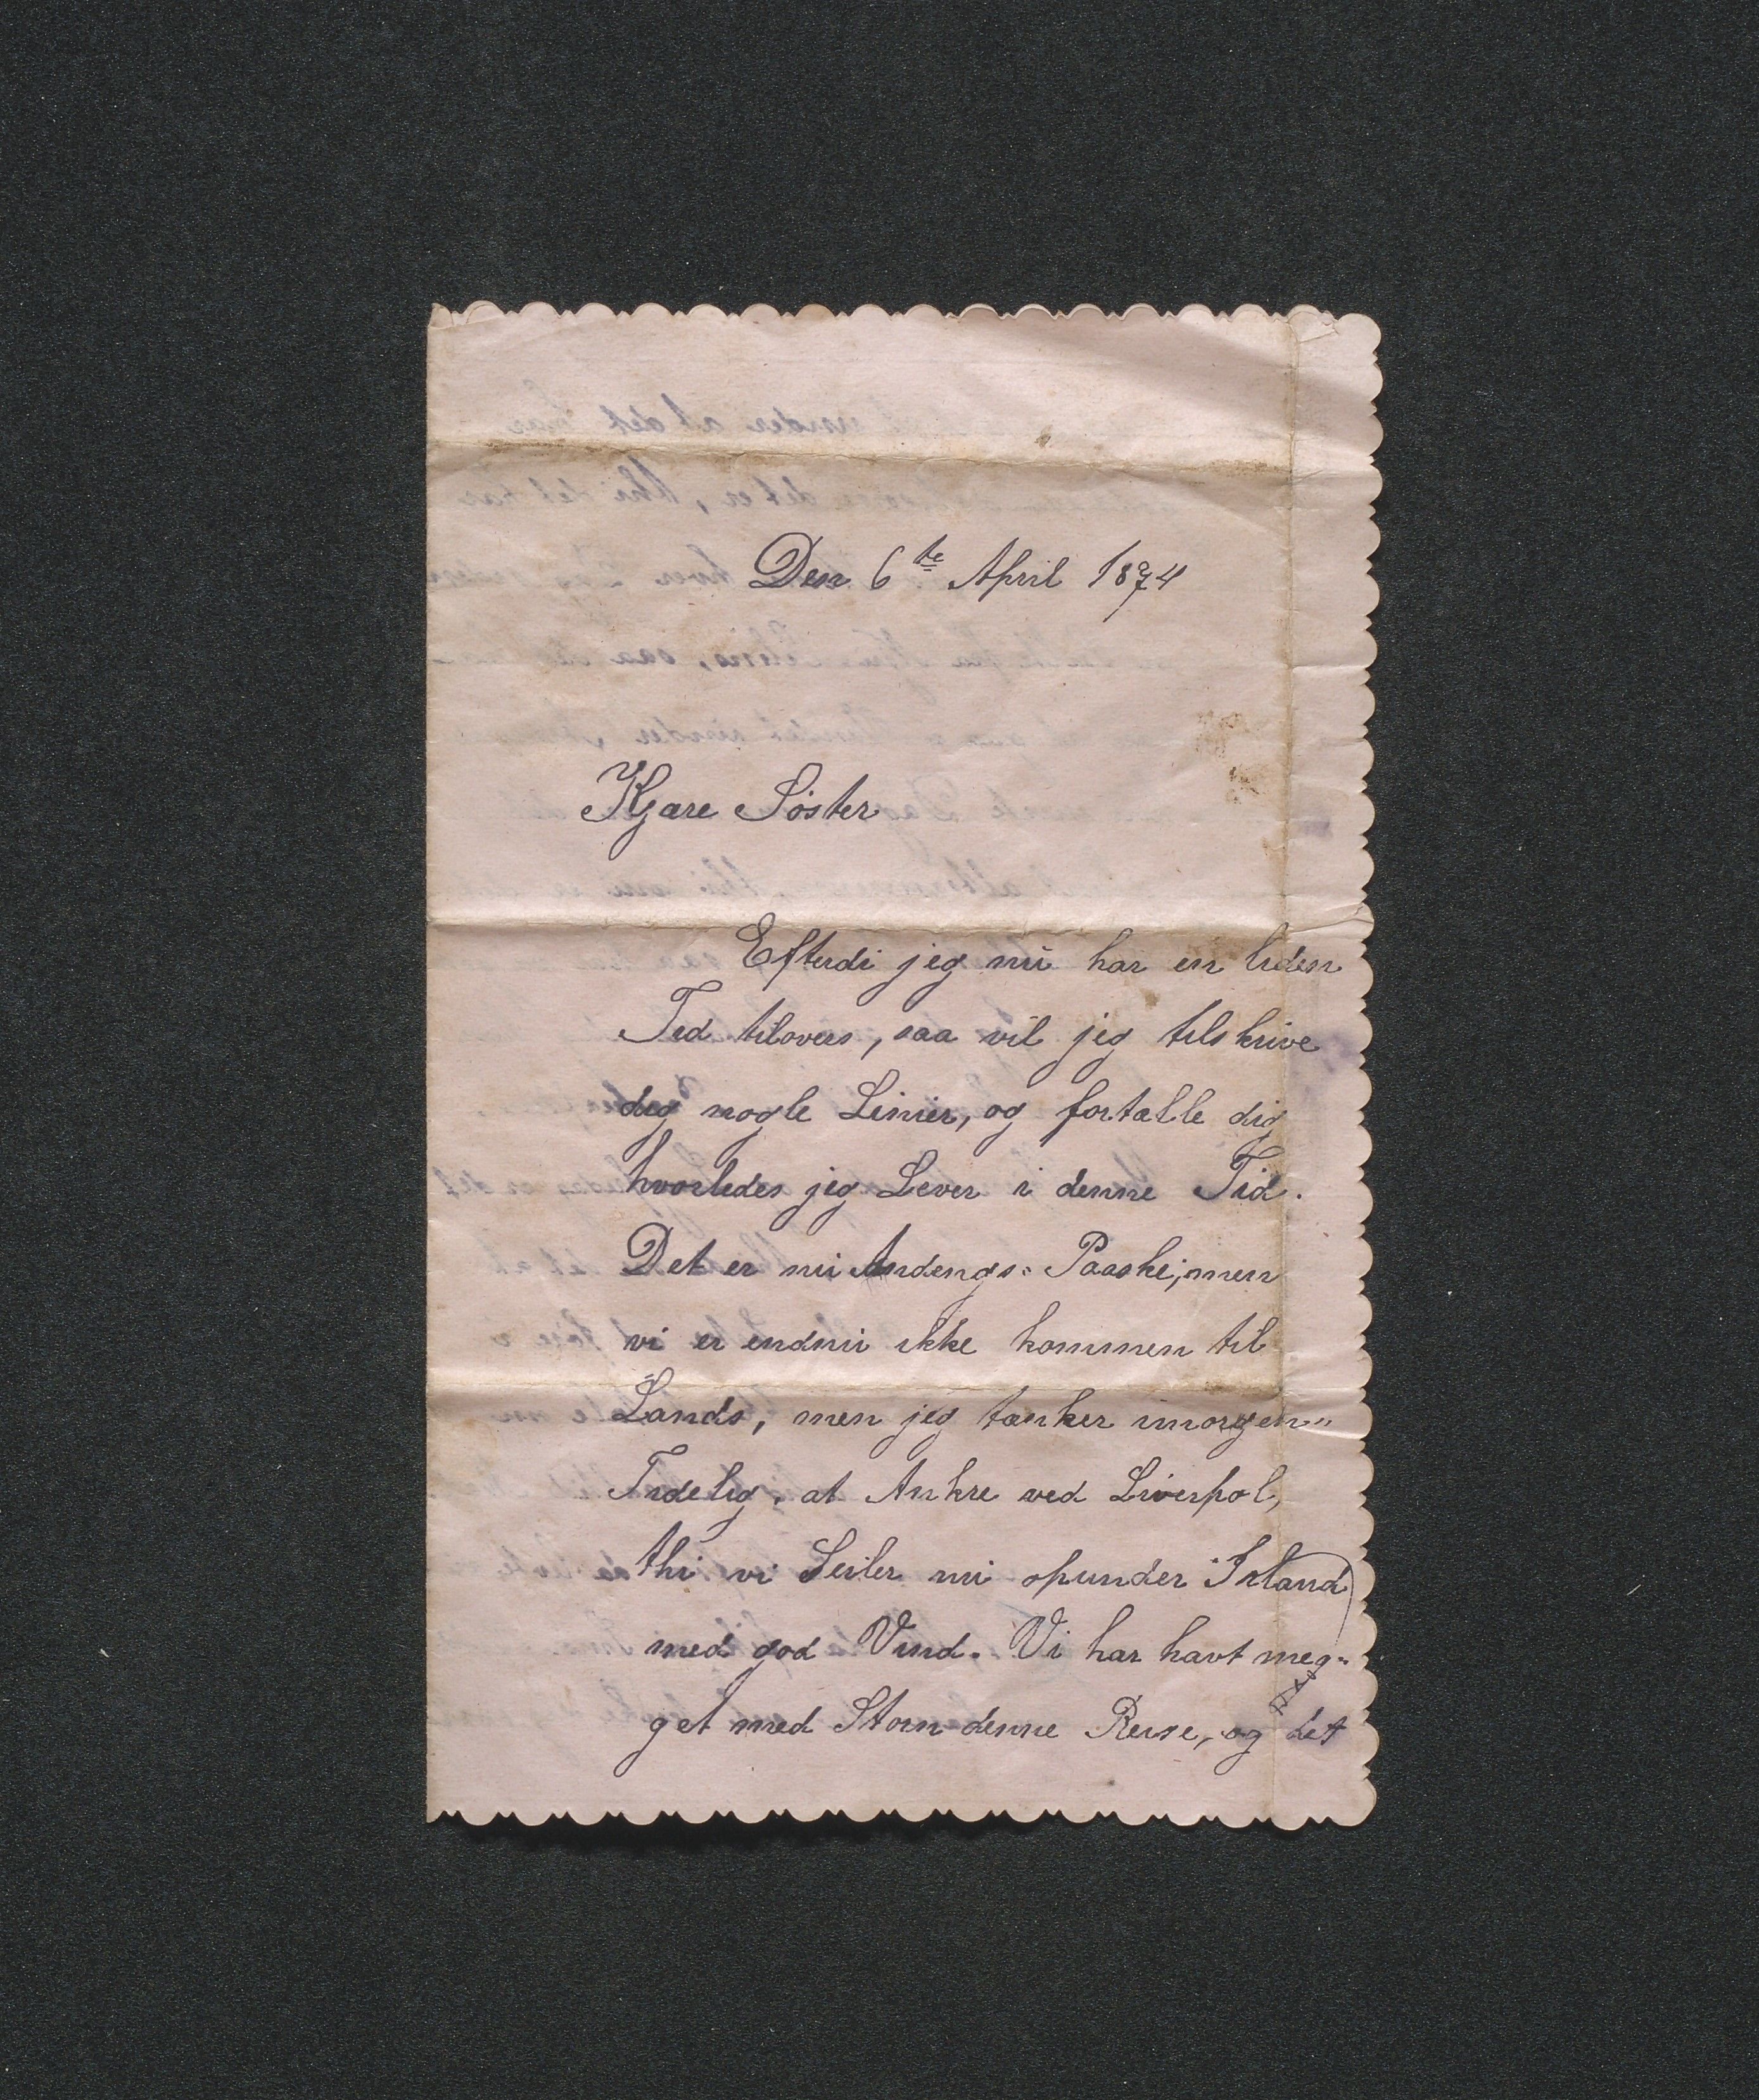 Den 6te April 1874
Kjære Søster
Efterdi jeg nu har en liden
Tid tilovers, saa vil jeg tilskrive
dig nogle Linier, og fortælle dig
hvorledes jeg Lever i denne Tid.
Det er nu Andengs= Paaske, men
vi er endnu ikke kommen til
Lands, men jeg tænker imorgen=
Tidelig, at Ankre ved Liverpol,
thi vi Seiler nu opunder Irland
med god Vind. Vi har havt meg=
get med Storm denne Reise, og det